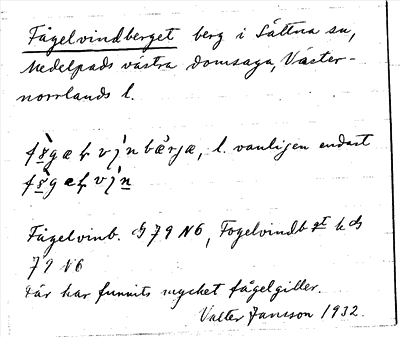 Fågelvindberget berg i Sättna sn,
Medelpads västra domsaga, Väster-
norrlands l.
l. vanligen endast
Fågelvinb. G 79 N6, Fogelvindb
79 N6
Där har funnits mycket fågelgiller.
Valter Jansson 1932.